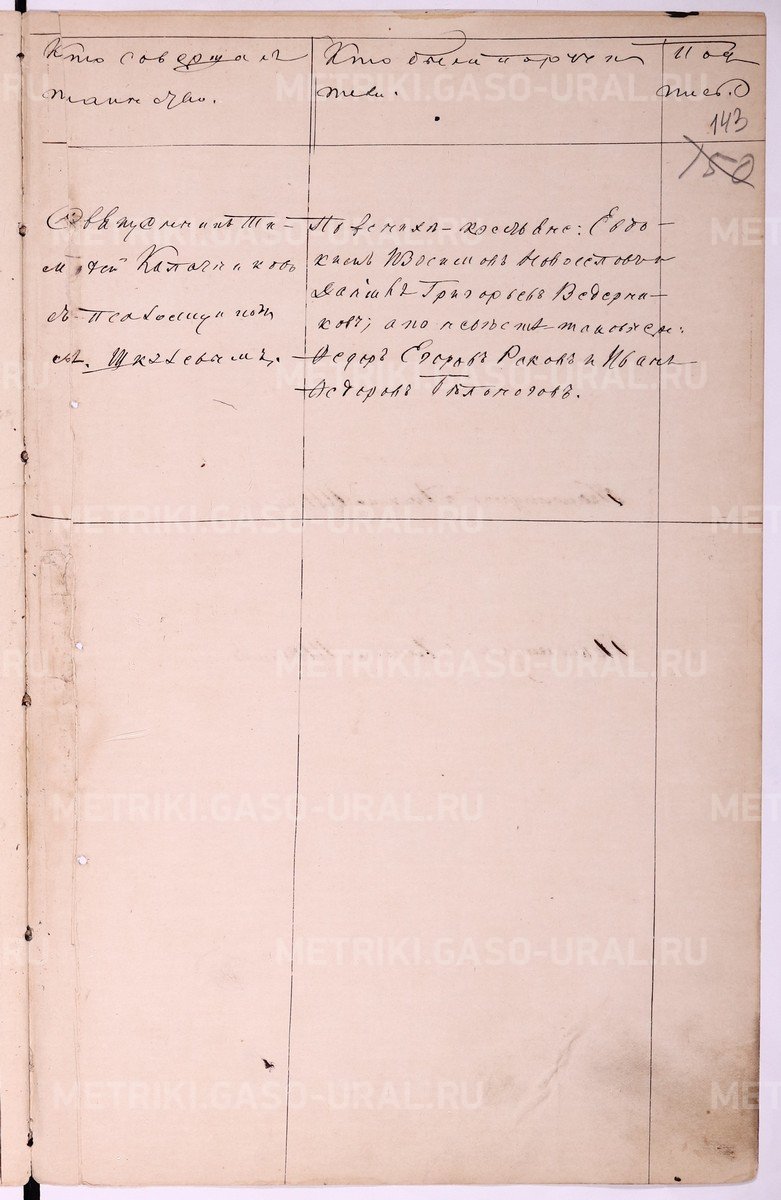 Кто совершал
таинство.
Кто были поручи
тели.
Под
пись.
143
150
Священникъ Ти-
мофей Калачниковъ
съ псаломщикомъ
По женихѣ - крестьяне: Евдо-
кимъ Изосимовъ Новоселовъ и
Григорьевъ Ведерни-
ковъ; а по невѣстѣ таковыеже:
Федоръ Егоровъ Раковъ и Иванъ
Федоровъ Бѣлоноговъ.
METRIKI.GASO-URAL.RU